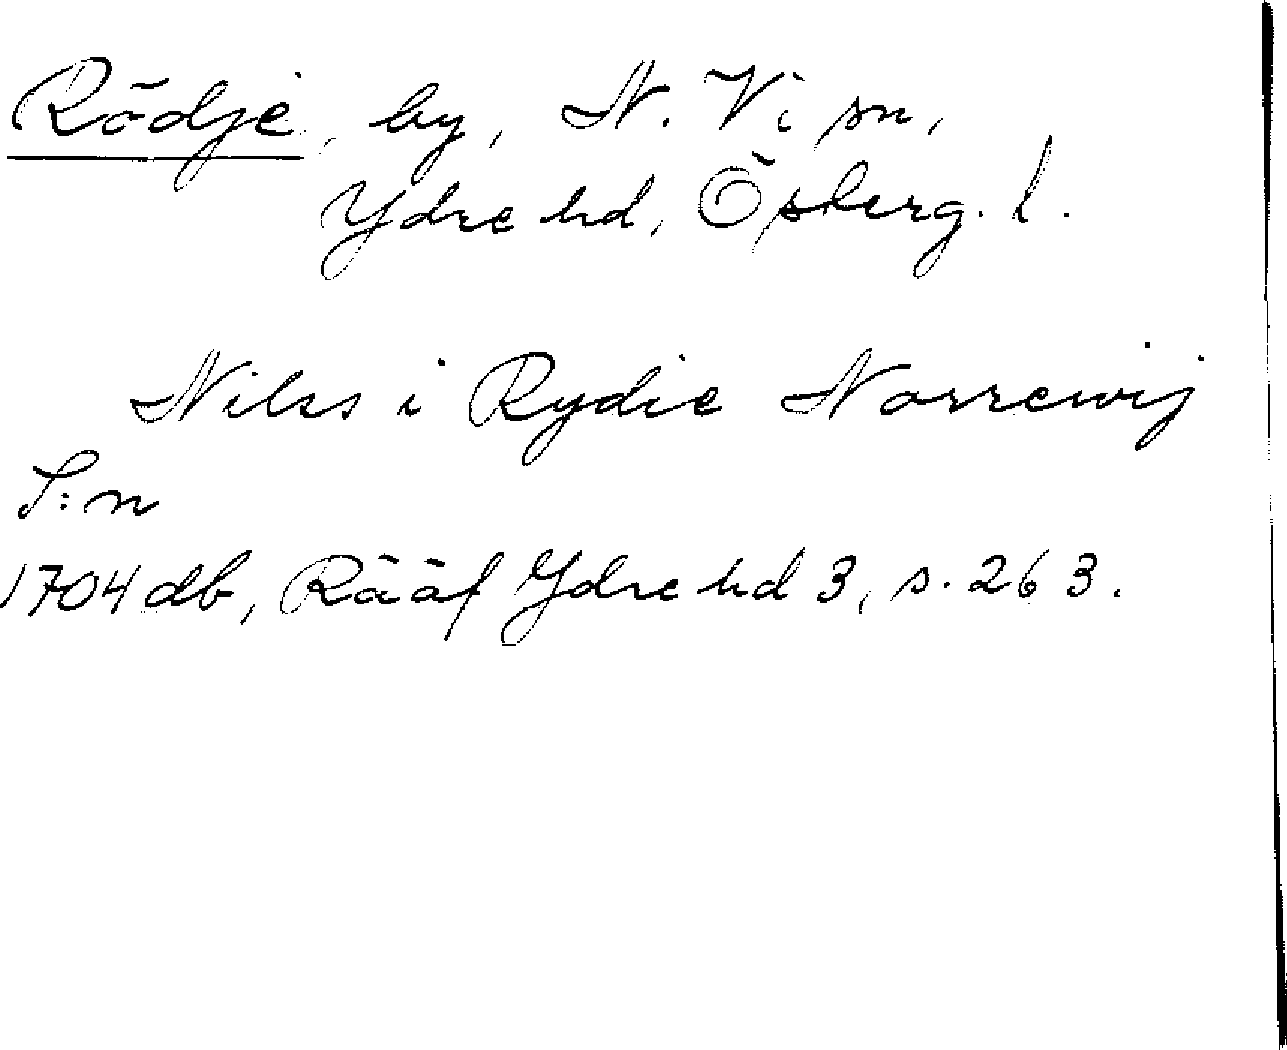 Rödje, by, N. Vi sn,
Ydre hd, Österg. l.
Nilss i Rydie Norrewij
S:n
1704 db, Rääf Ydre hd 3, s. 263.